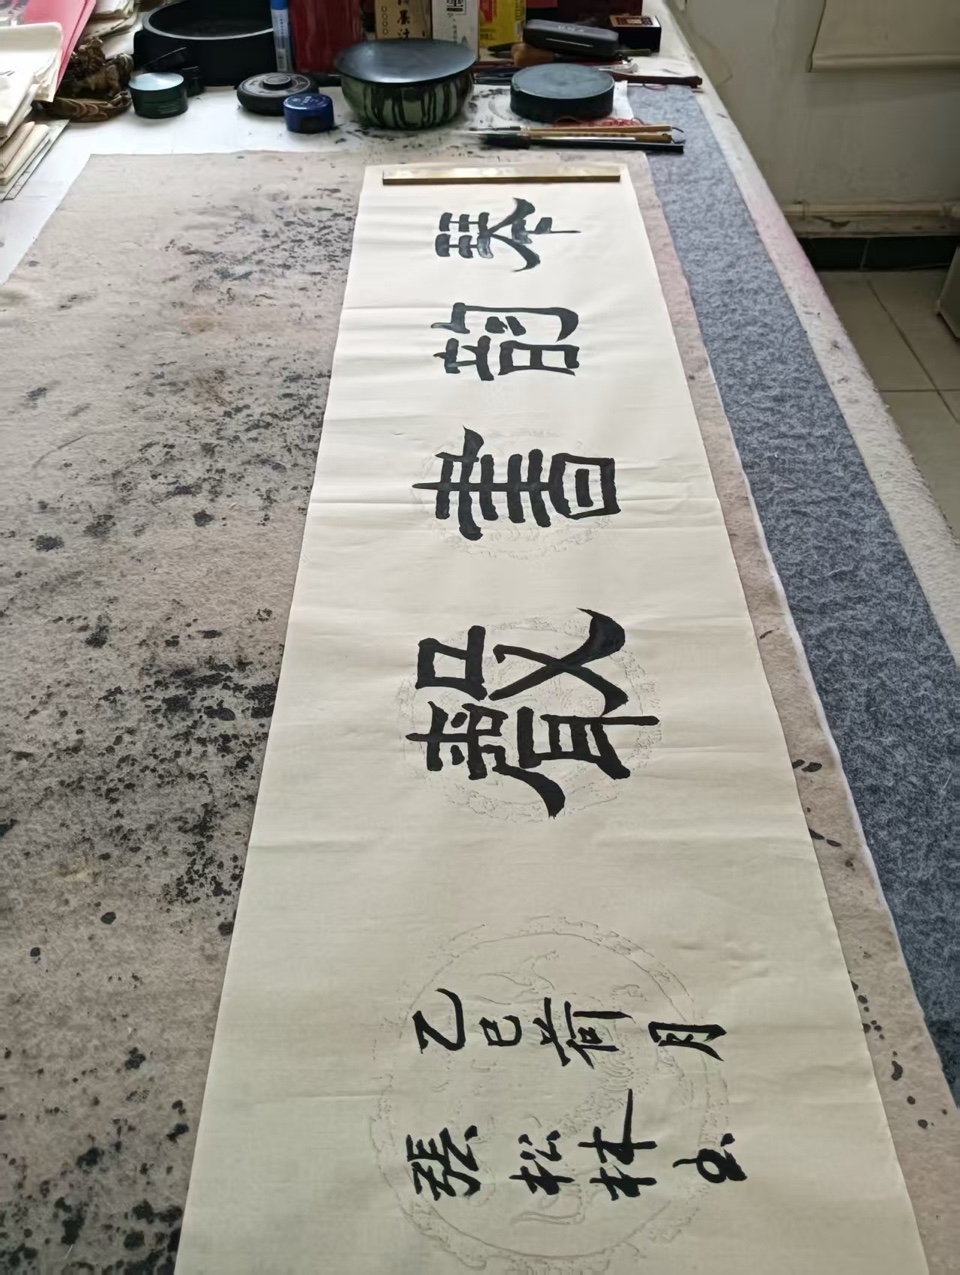 琴韵書聲
乙巳荷月
張松林書